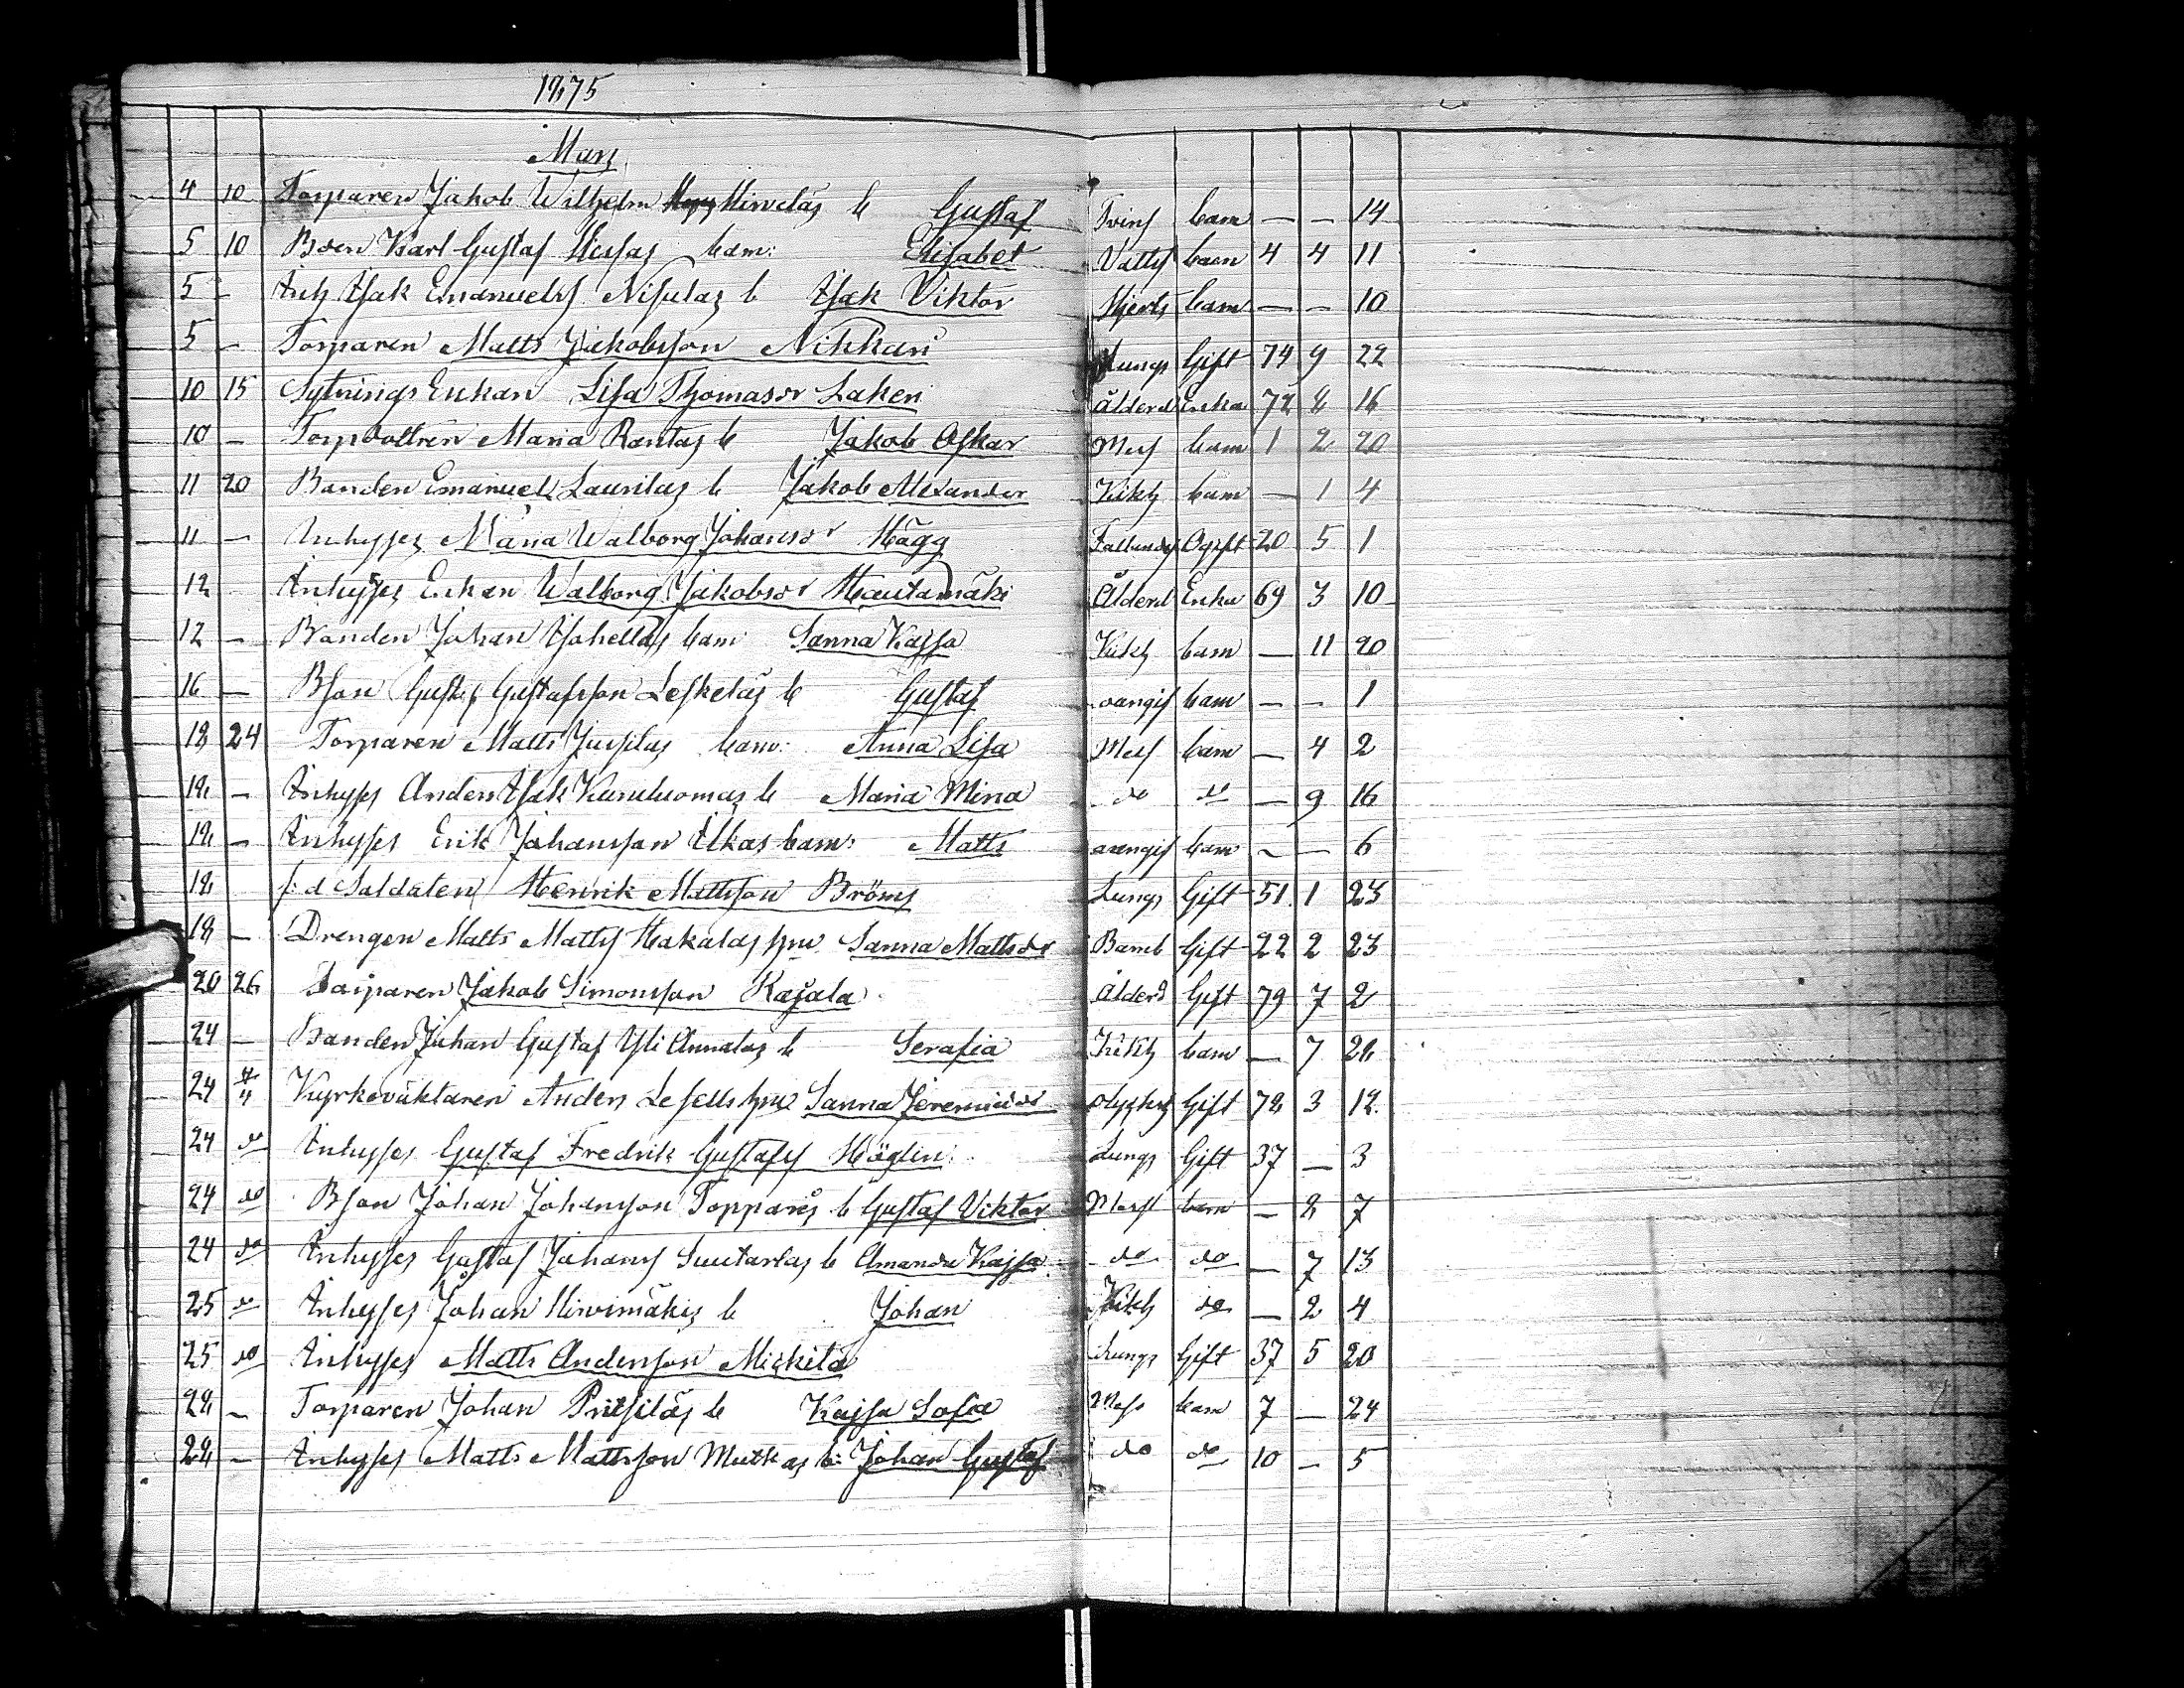 1875
Mars
4 10 Torparen Jakob Wilhelm Hirvelas b Gustaf Tvins barn — — 14
5 10 Boen Karl Gustaf Hessas barn: Elisabet Vatts barn 4 4 11
5 - Inh Isak Emanuels Nisulas b Isak Viktor Hjerts barn — — 10
5 - Torparen Matts Jakobsson Nikkari Lungs Gift 74 9 22
10 15 Sytnings Enkan Lisa Thomasdr Laken Ålderd Enka 72 8 16
10 - Torpdottren Maria Rantas b Jakob Oskar Mess barn 1 2 20
11 20 Bonden Emanuel Laurilas b Jakob Alexander Kikh barn — 1 4
11 - Inhyses Maria Walborg Johansdr Hägg Fallands Ogift 20 5 1
12 Inhyses Enkan Walborg Jakobsdr Hautamäki Ålderd Enka 69 3 10
12 - Bonden Johan Isohellas barn Sanna Kajsa Kikh barn — 11 20
16 - Bson Gustaf Gustafsson Leskelas b Gustaf oangif barn — — 1
18 24 Torparen Matts Jussilas barn: Anna Lisa Mess barn — 4 2
18 - Inhyses Anders Isak b Maria Mina do do — 9 16
18 - Inhyses Erik Johansson Ilkas barn: Matts oangif barn — — 6
18 f:d Soldaten Henrik Mattsson Bröms Lungs Gift 51 1 23
18 - Drengen Matts Matts Hakalas hru Sanna Mattsdr Barnb Gift 22 2 23
20 26 Torparen Jakob Simonsson Kasala Ålderd Gift 79 7 2
24 - Bonden Johan Gustaf Yli Annalas b Serafia Kikh barn — 7 28
24 4/4 Kyrkoväktaren Anders Lesells hru Sanna Jeremiasdr Gift 72 3 12
24 do Inhyses Gustaf Fredrik Gustafs Höglin Lungs Gift 37 — 3
24 do Bson Johan Johansson Topparis b Gustaf Viktor Mess barn — 2 7
24 do Inhyses Gustaf Johans Suutarlas b Amanda Kajsa do do — 7 13
25 do Inhyses Johan Hirvimäkis b Johan Kikh do — 2 4
25 do Inhyses Matts Andersson Mickilä Lungs Gift 37 5 20
28 - Torparen Johan Pritsiläs b Kajsa Sofia Mess barn 7 — 24
28 - Inhyses Matts Mattsson Mutkas b: Johan Gustaf do do 10 — 5